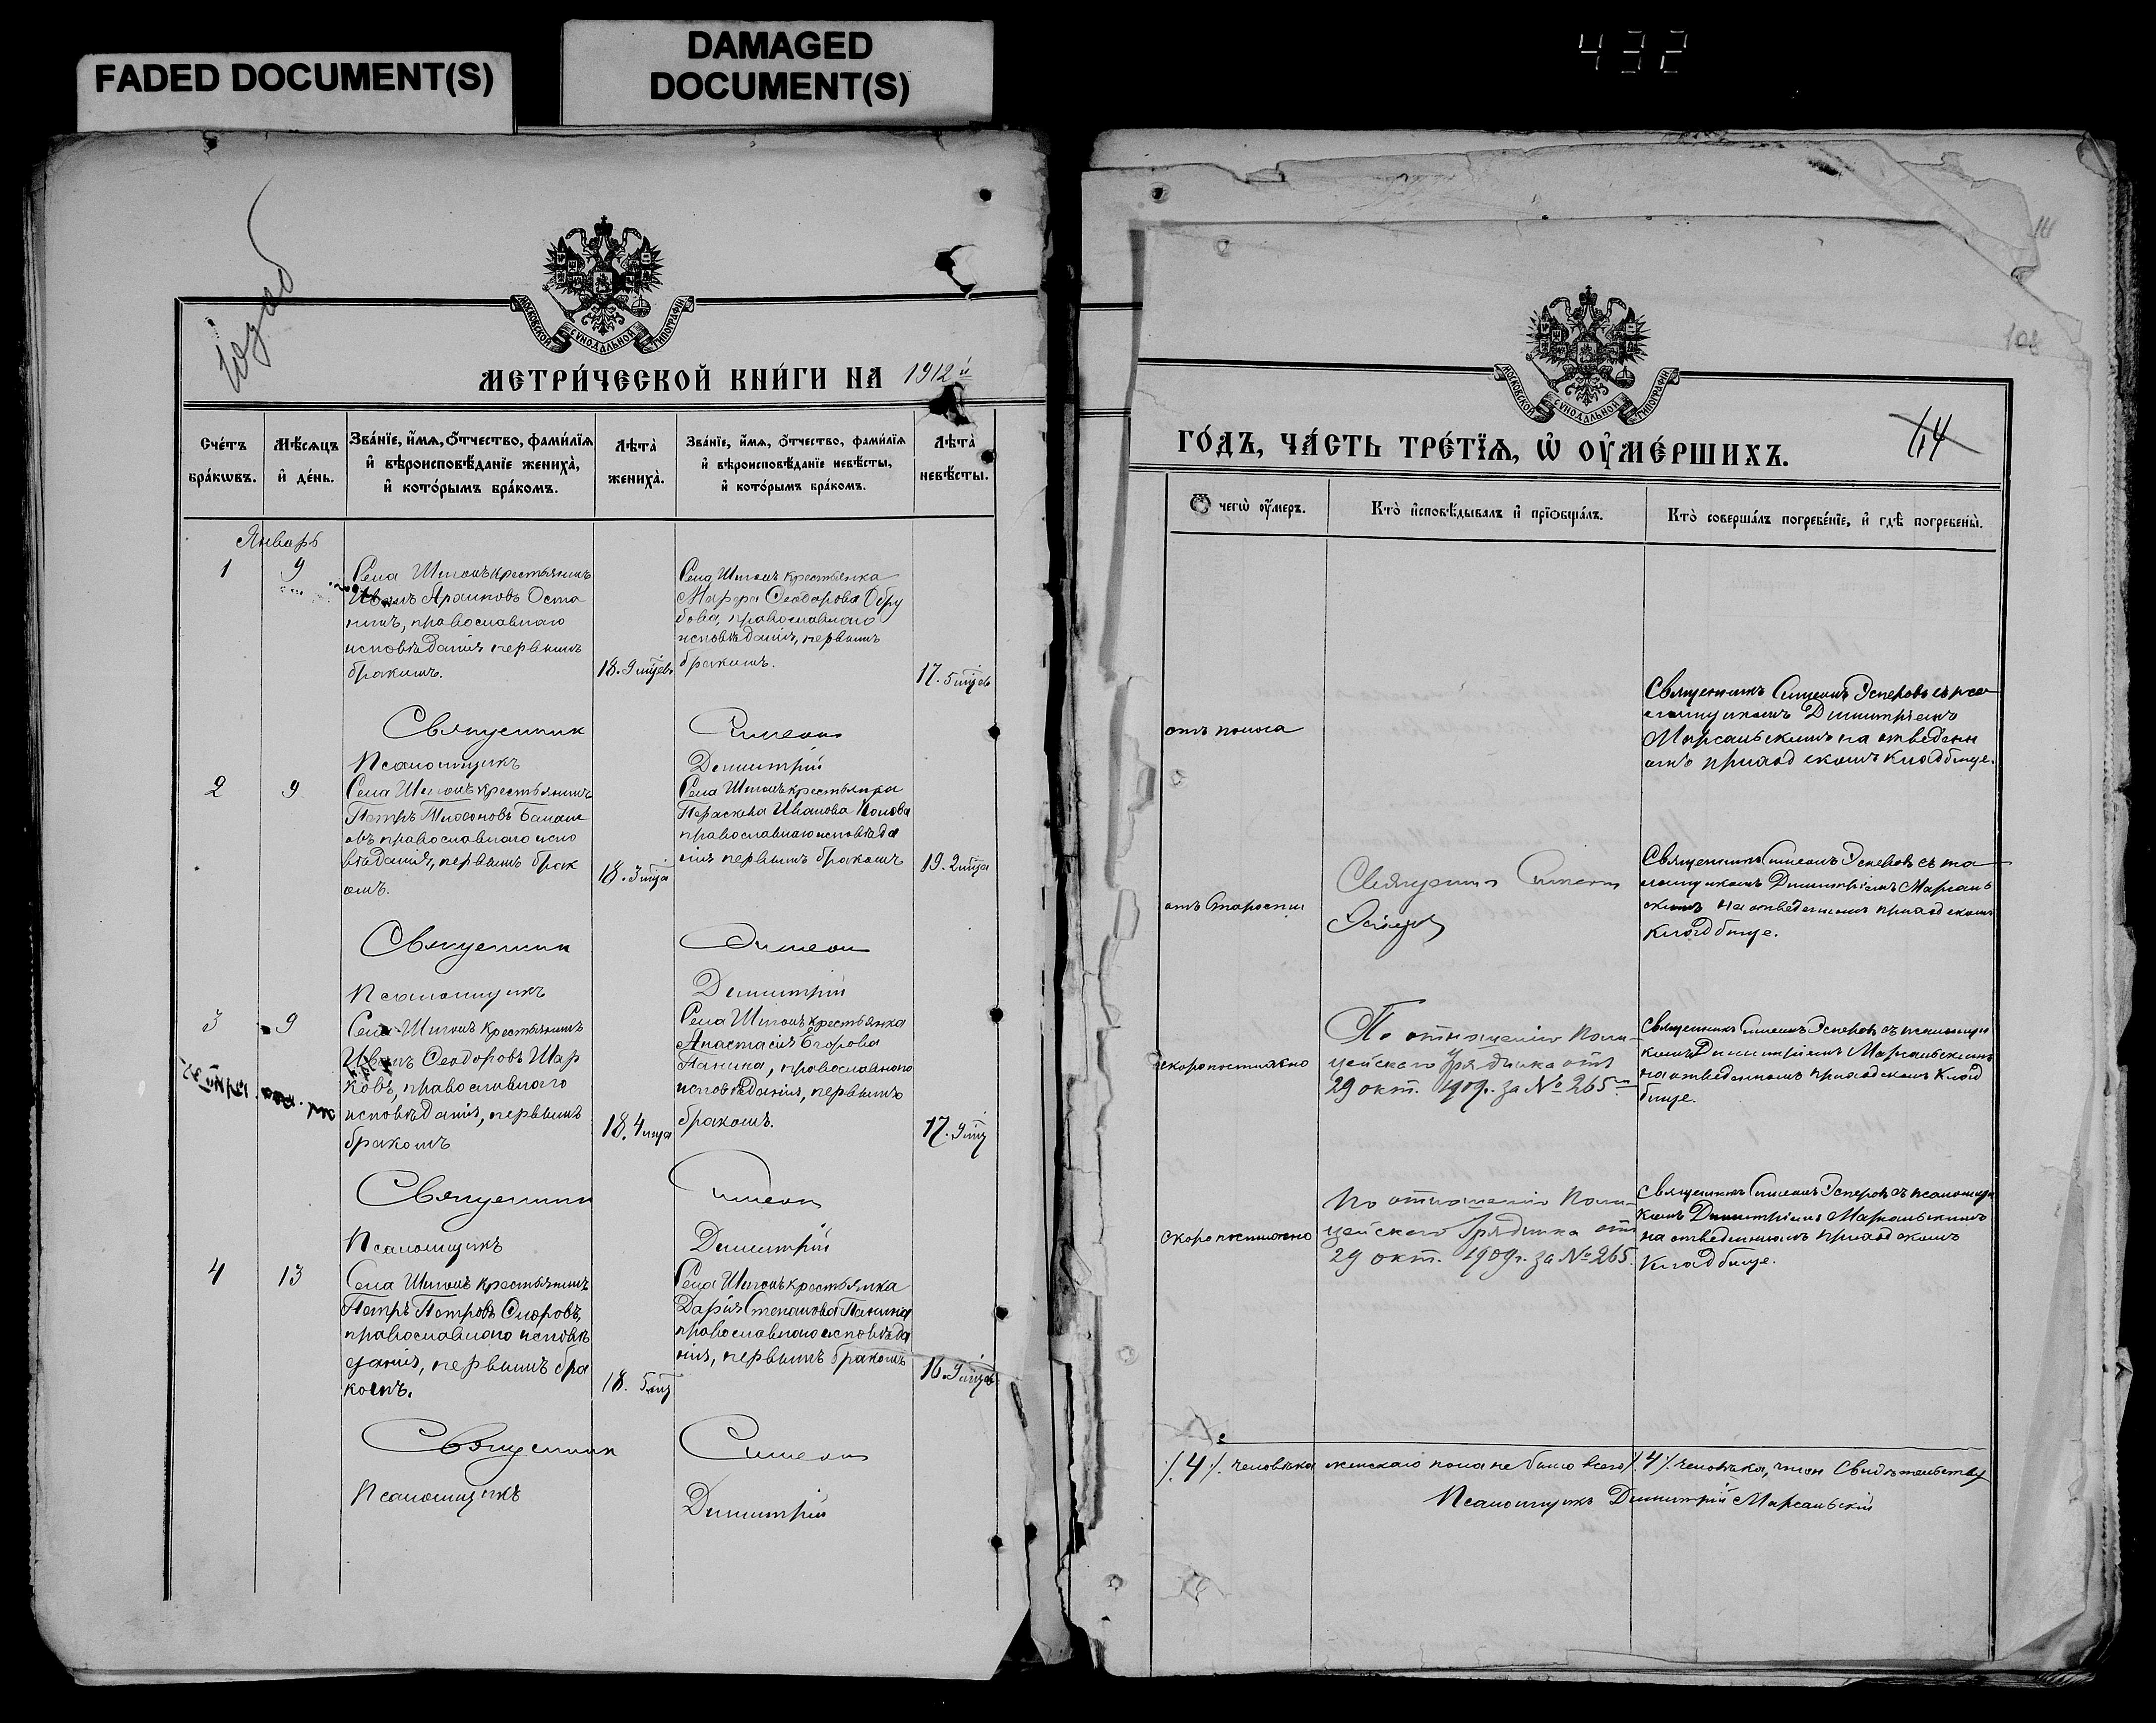 FADED DOCUMENT(S)
DAMAGED
DOCUMENT(S)
432
МОСКОВСКОЙ СѴНОДАЛЬНОЙ ТИПОГРАФІИ
МЕТРИ́ЧЕСКОЙ КНИ́ГИ НА 1912 й
Сче́тъ бра́кѡвъ.
Мѣ́сѧцъ и҆ де́нь.
Зва́нїе, и҆́мѧ, ѻ҆́тчество, фами́лїѧ
и҆ вѣроисповѣ́данїе жениха̀,
и҆ кото́рымъ бра́комъ.
Лѣта̀ жениха̀.
Зва́нїе, и҆́мѧ, ѻ҆́тчество, фами́лїѧ
и҆ вѣроисповѣ́данїе невѣ́сты,
и҆ кото́рымъ бра́комъ.
Лѣта̀ невѣ́сты.
Январь
1 9
Села Шигонъ крестьянинъ
Иванъ Оста
нинъ, православнаго
исповѣданія первымъ
бракомъ.
18. 9 мцевъ
Села Шигонъ крестьянка
Марфа Ѳеодорова Обру
бова, православнаго
исповѣданія, первымъ
бракомъ.
17. 5 мцев
Священник Симеон
Псаломщикъ Димитрій
2 9
Села Шигонъ крестьянинъ
Петръ
овъ православнаго испо
вѣданія, первымъ брак
омъ.
18. 3 мца
Села Шигонъ крестьянка
Параскева Иванова Попова
православнаго исповѣда
нія первымъ бракомъ
19. 2 мца
Священник Симеон
Псаломщикъ Димитрій
3 9
Села Шигонъ крестьянинъ
Иванъ Ѳеодоровъ Шар
ковъ, православнаго
исповѣданія, первымъ
бракомъ
18. 4 мца
Села Шигонъ крестьянка
Анастасія Егорова
Панина, православнаго
исповѣданія, первымъ
бракомъ.
17. 9 мц
Священник Симеон
Псаломщикъ Димитрій
4 13
Села Шигонъ крестьянинъ
Петръ Петровъ
православнаго исповѣ
данія, первымъ бра
комъ.
18. 5 мц
Села Шигонъ крестьянка
Дарія Степанова Панина
православнаго исповѣда
нія, первымъ бракомъ
16. 9 мцев
Священник Симеон
Псаломщикъ Димитрій
108
МОСКОВСКОЙ СѴНОДАЛЬНОЙ ТИПОГРАФІИ
ГО́ДЪ, ЧА́СТЬ ТРЕ́ТЇѦ, Ѡ҆ ОУ҆МЕ́РШИХЪ.
14
Ѿ чегѡ̀ оу҆́меръ.
Кто̀ и҆сповѣ́дывалъ и҆ прїобща́лъ.
Кто̀ соверша́лъ погребе́нїе, и҆ гдѣ̀ погребены̀.
отъ поноса
Священникъ Симеонъ Эсперовъ съ пса
ломщикомъ Димитріемъ
Марсальскимъ на отведенн
омъ приходскомъ кладбище.
отъ старости
Священник Симеон
Священникъ Симеонъ Эсперовъ съ пса
ломщикомъ Димитріемъ Марсаль
скимъ на отведенномъ приходскомъ
кладбище.
скоропостижно
По отношенію поли-
цейскаго Урядника отъ
29 окт. 1909 г. за № 265
Священникъ Симеонъ Эсперовъ съ псаломщи
комъ Димитріемъ Марсальскимъ
на отведенномъ приходскомъ клад
бище.
скоропостижно
По отношенію поли-
цейскаго Урядника отъ
29 окт. 1909 г. за № 265.
Священникъ Симеонъ Эсперовъ съ псаломщи
комъ Димитріемъ Марсальскимъ
на отведенномъ приходскомъ
кладбище.
4 человѣка женскаго пола не было всего 4 человѣка,
Псаломщикъ Димитрій Марсальскій